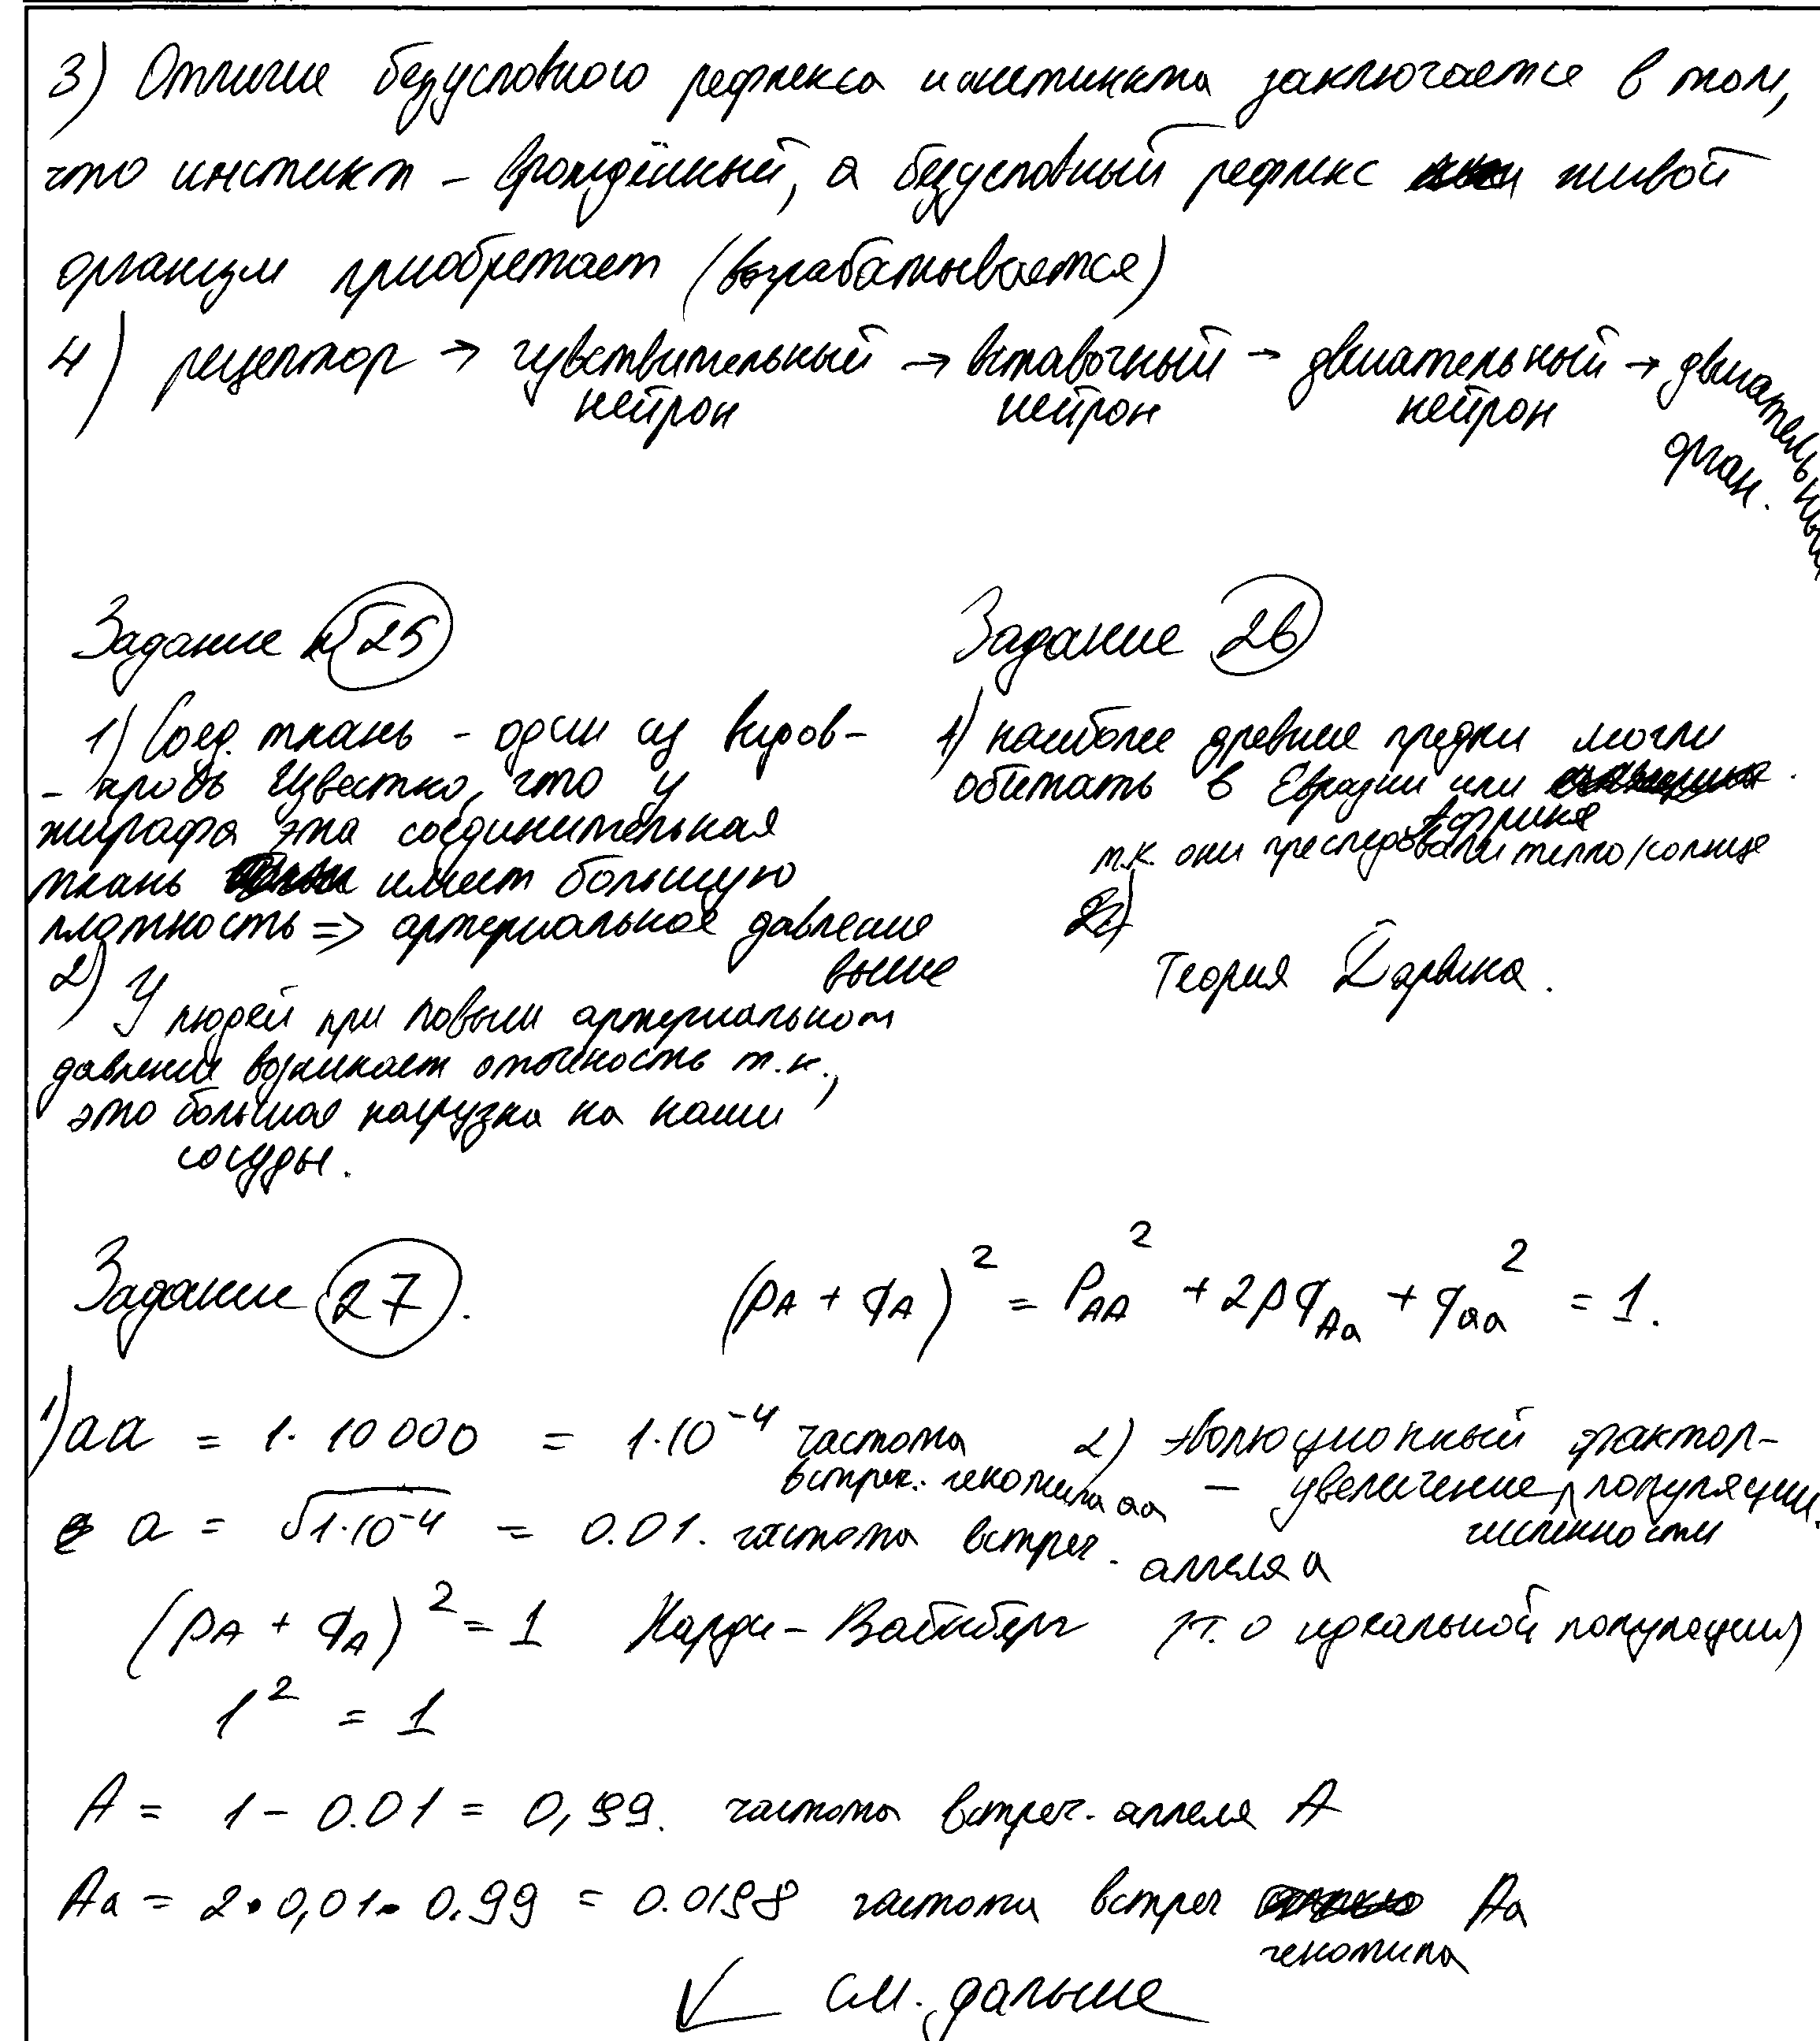 3) Отличие безусловного рефлекса и инстинкта заключается в том,
что инстикт - врождённый, а безусловный рефлекс живой
организм приобретает (вырабатывается)
4) рецептор → чувствительный нейрон → вставочный нейрон → двигательный нейрон → двигательный орган.
Задание №25
1) Соед. ткань - один из видов-
- кровь Известно, что у
жирафа эта соединительная
ткань имеет большую
плотность => артериальное давление
выше
2) У людей при повыш артериальном
давлении возникает отёчность т.к.,
это большая нагрузка на наши
сосуды.
Задание 26
1) наиболее древние предки могли
обитать в Евразии или Африке
т.к. они преследовали тепло/солнце
2)
Теория Дарвина.
Задание 27.
(pA + qA)² = P²AA + 2pqAa + q²aa = 1.
1) aa = 1 · 10 000 = 1·10⁻⁴ частота
встреч. генотипа aa
a = √1·10⁻⁴ = 0.01. частота встреч. аллеля a
(pA + qA)² = 1 Харди - Вайнберг (т. о идеальной популяции)
1² = 1
A = 1 - 0.01 = 0,99. частота встреч. аллеля A
Aa = 2 · 0,01 · 0.99 = 0.0198 частота встреч генотипа Aa
2) эволюционный фактор-
- увеличение численности популяции.
см. дальше